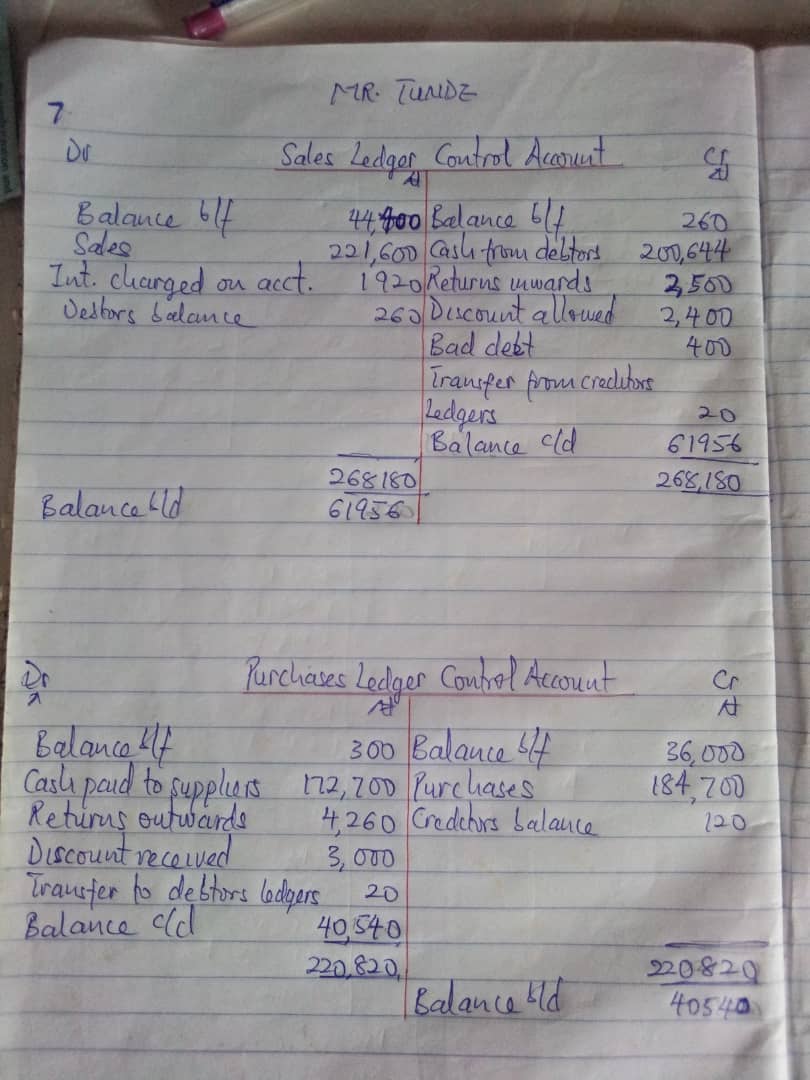 MR. TUNDE
7
Dr Sales Ledger Control Account Cr
₦ ₦
Balance b/f 44,400 Balance b/f 260
Sales 221,600 Cash from debtors 200,644
Int. charged on acct. 1920 Returns inwards 2,500
Debtors balance 260 Discount allowed 2,400
Bad debt 400
Transfer from creditors
Ledgers 20
Balance c/d 61956
268180 268,180
Balance b/d 61956
Dr Purchases Ledger Control Account Cr
₦ ₦
Balance b/f 300 Balance b/f 36,000
Cash paid to suppliers 172,700 Purchases 184,700
Returns outwards 4,260 Creditors balance 120
Discount received 3,000
Transfer to debtors ledgers 20
Balance c/d 40,540
220,820 220820
Balance b/d 40540